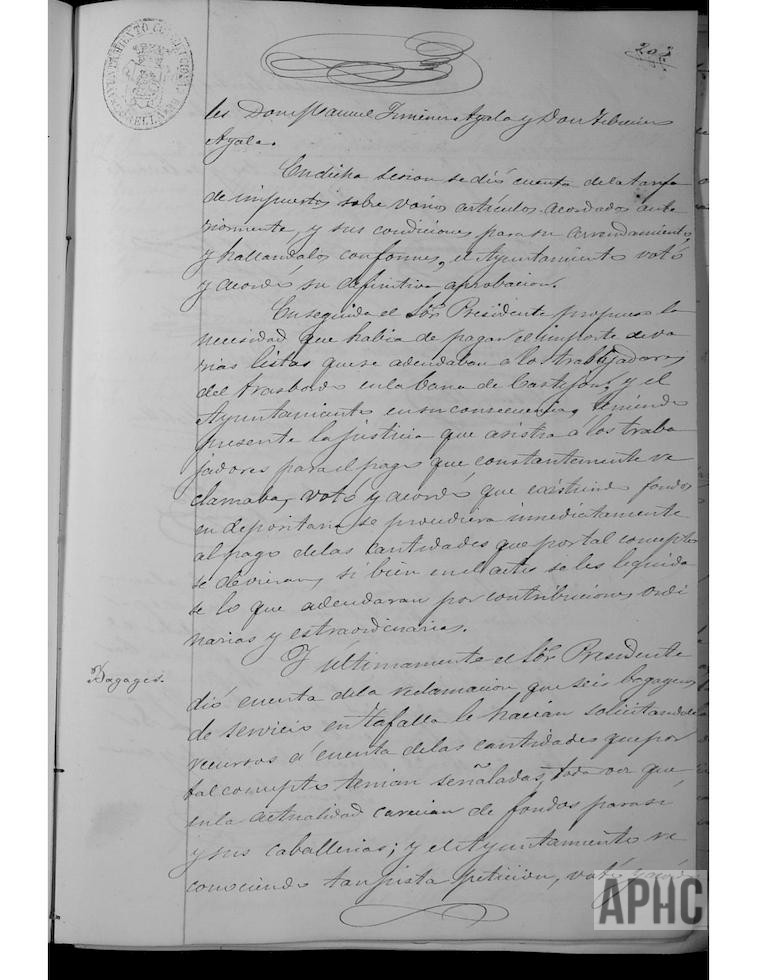 203
AYUNTAMIENTO CONSTITUCIONAL
les Don Manuel Jimenez Ayala y Don Tiburcio
Ayala.
En dicha sesion se dió cuenta de la tarifa
de impuestos sobre varios artículos acordados ante
riormente, y sus condiciones para su arrendamiento
y hallandolos conformes, el Ayuntamiento votó
y acordó su definitiva aprobacion.
En seguida el Sor. Presidente propuso la
necesidad que habia de pagar el importe de va
rias listas que se adeudaban a los trabajadores
del trasbordo en la barca de Castejon; y el
Ayuntamiento en su consecuencia, teniendo
presente la justicia que asistia a los traba
jadores para el pago que constantemente re
clamaba, votó y acordó que existiendo fondos
en depositaria se procediera inmediatamente
al pago de las cantidades que por tal concepto
se devieran, si bien en el acto se les liquida
se lo que adeudaran por contribuciones ordi
narias y estraordinarias.
Bagages.
Y últimamente el Sor. Presidente
dió cuenta de la reclamacion que seis bagages
de servicio en Tafalla le hacian solicitando
recursos á cuenta de las cantidades que por
tal concepto tenian señaladas, toda vez que
en la actualidad carecian de fondos para si
y sus caballerias; y el Ayuntamiento re
conociendo tan justa peticion, votó y acordó
APHC